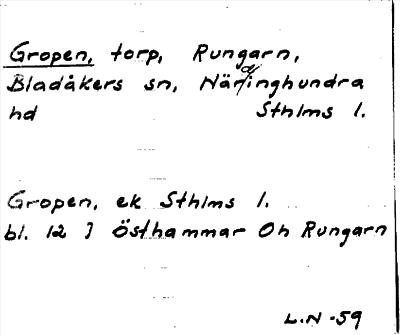 Gropen, torp, Rungarn,
Bladåkers sn, Närdinghundra
hd Sthlms l.
Gropen, ek Sthlms l.
bl. 12 J Östhammar Oh Rungarn
L.N -59